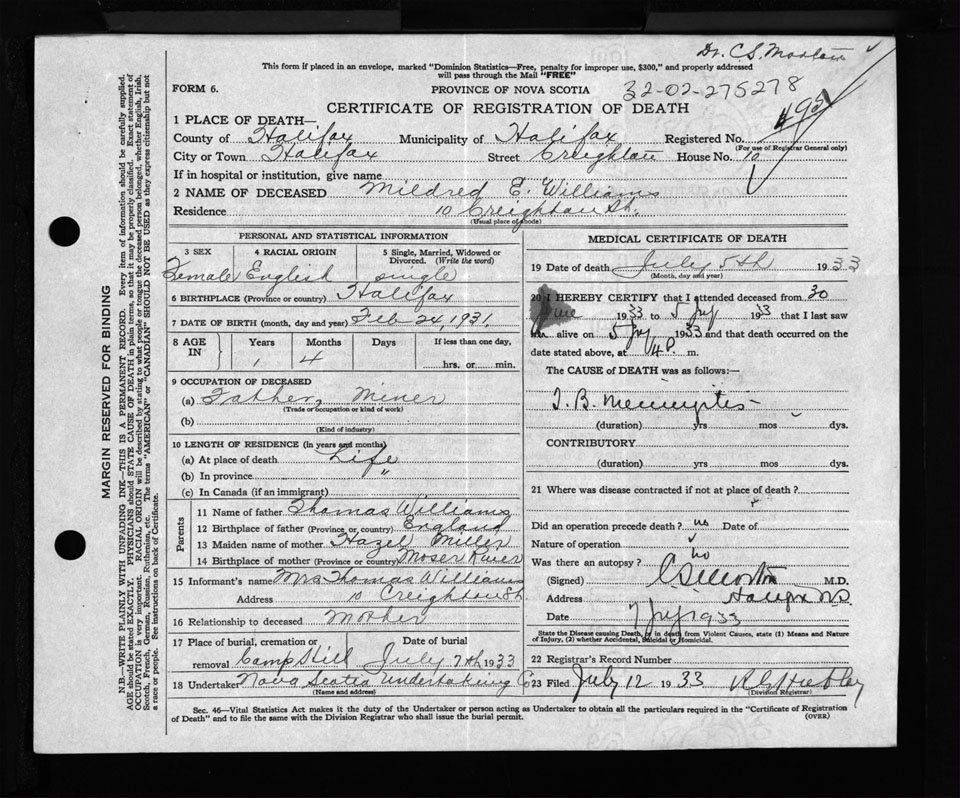 Dr. C.S. Morton
This form if placed in an envelope, marked "Dominion Statistics—Free, penalty for improper use, $300," and properly addressed
will pass through the Mail "FREE"
FORM 6.
PROVINCE OF NOVA SCOTIA
32-02-275278
CERTIFICATE OF REGISTRATION OF DEATH
1 PLACE OF DEATH—
County of Halifax Municipality of Halifax Registered No.
(For use of Registrar General only)
City or Town Halifax Street Creighton House No. 10
If in hospital or institution, give name
2 NAME OF DECEASED Mildred E. Williams
Residence 10 Creighton St.
(Usual place of abode)
PERSONAL AND STATISTICAL INFORMATION
3 SEX 4 RACIAL ORIGIN 5 Single, Married, Widowed or Divorced. (Write the word)
Female English single
6 BIRTHPLACE (Province or country) Halifax
7 DATE OF BIRTH (month, day and year) Feb 24, 1931.
8 AGE IN Years Months Days If less than one day,
1 4 hrs. or min.
9 OCCUPATION OF DECEASED
(a) Father, Miner
(Trade or occupation or kind of work)
(b)
(Kind of industry)
10 LENGTH OF RESIDENCE (in years and months)
(a) At place of death Life
(b) In province "
(c) In Canada (if an immigrant)
Parents
11 Name of father Thomas Williams
12 Birthplace of father (Province or country) England
13 Maiden name of mother Hazel Miller
14 Birthplace of mother (Province or country) Moser River
15 Informant's name Mrs Thomas Williams
Address 10 Creighton St
16 Relationship to deceased Mother
17 Place of burial, cremation or removal Date of burial
Camp Hill July 7th 1933
18 Undertaker Nova Scotia Undertaking Co
(Name and address)
MEDICAL CERTIFICATE OF DEATH
19 Date of death July 5th 1933
(Month, day and year)
20 I HEREBY CERTIFY that I attended deceased from 30
June 1933 to 5 July 1933 that I last saw
alive on 5 July 1933 and that death occurred on the
date stated above, at m.
The CAUSE of DEATH was as follows:—
T.B. Meningitis
(duration) yrs mos dys.
CONTRIBUTORY
(duration) yrs mos dys.
21 Where was disease contracted if not at place of death?
Did an operation precede death? no Date of
Nature of operation
Was there an autopsy? no
(Signed) C S Morton M.D.
Address Halifax N.S.
Date 7 July 1933
State the Disease causing Death, or in death from Violent Causes, state (1) Means and Nature
of Injury, (2) whether Accidental, Suicidal or Homicidal.
22 Registrar's Record Number
23 Filed July 12 1933
(Division Registrar)
Sec. 46—Vital Statistics Act makes it the duty of the Undertaker or person acting as Undertaker to obtain all the particulars required in the "Certificate of Registration
of Death" and to file the same with the Division Registrar who shall issue the burial permit.
(OVER)
MARGIN RESERVED FOR BINDING
N.B.—WRITE PLAINLY WITH UNFADING INK—THIS IS A PERMANENT RECORD. Every item of information should be carefully supplied.
AGE should be stated EXACTLY. PHYSICIANS should STATE CAUSE OF DEATH in plain terms, so that it may be properly classified. Exact statement of
OCCUPATION is very important. RACIAL ORIGIN will be described by stating to what people or tongue the deceased person belonged, whether English, Irish,
Scotch, French, German, Russian, Ruthenian, etc. The terms "AMERICAN" or "CANADIAN" SHOULD NOT BE USED as they express citizenship but not
a race or people. See instructions on back of Certificate.